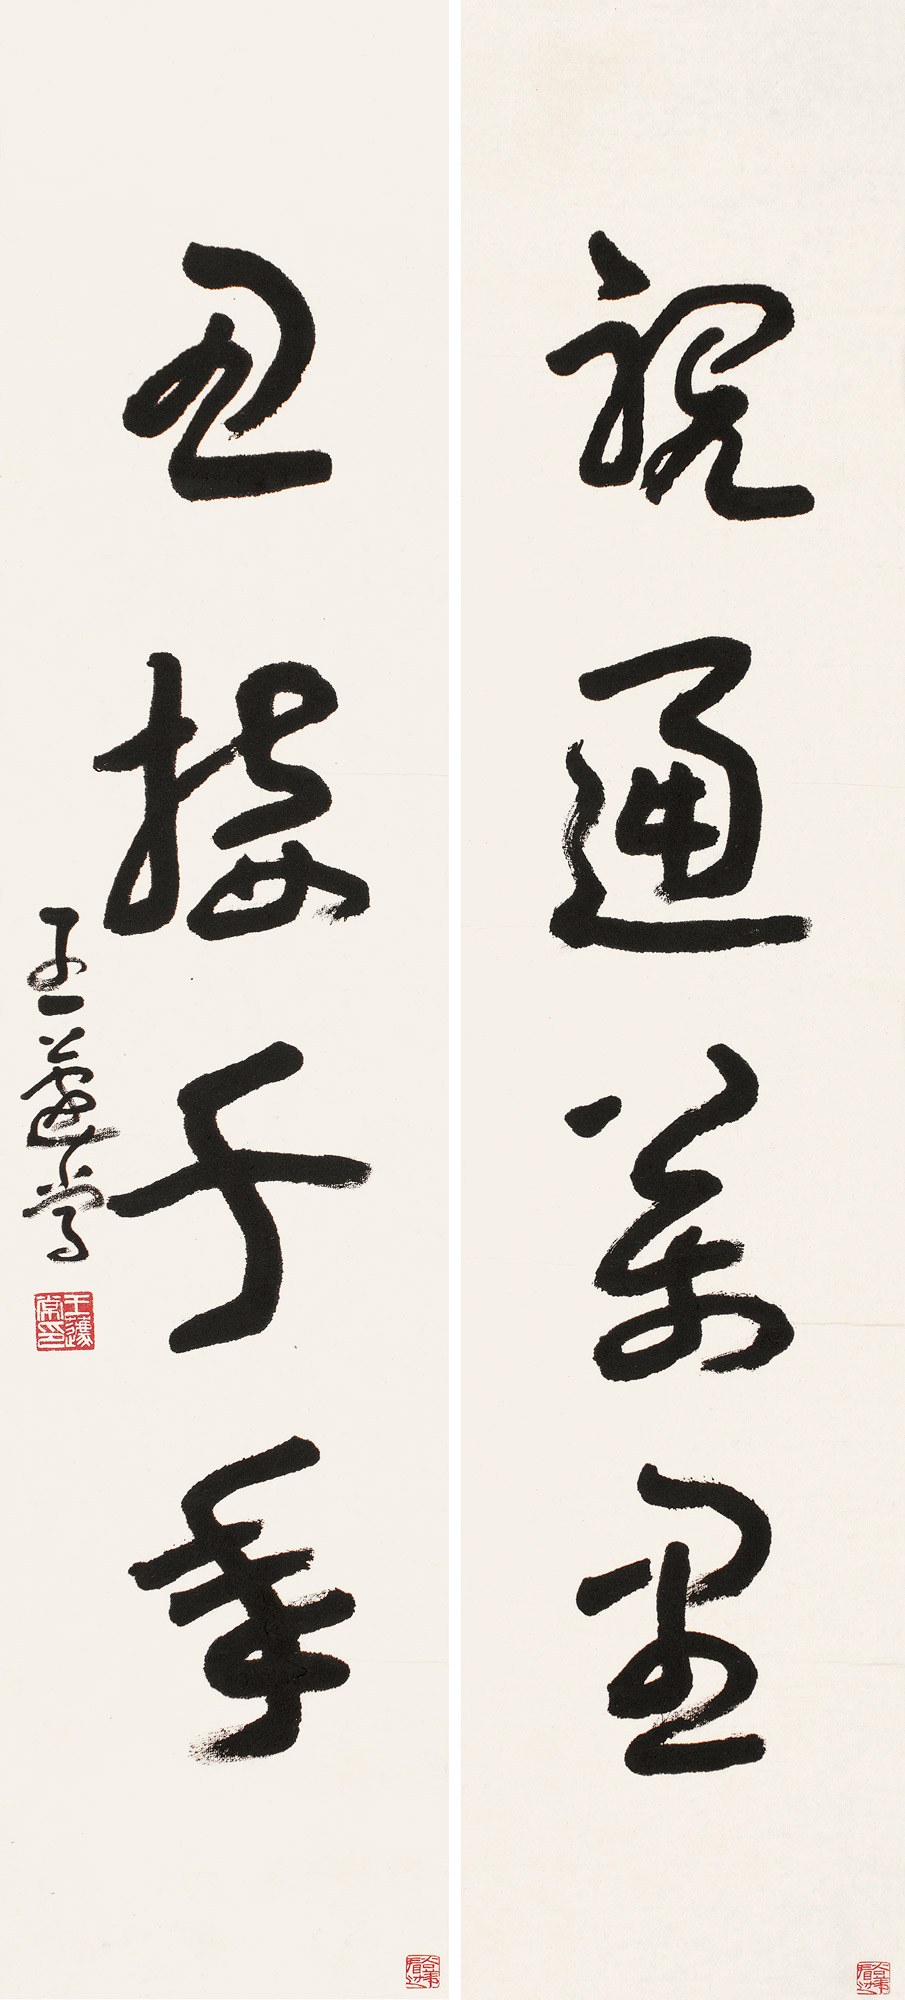 視通萬里
思接千年
王蘧常
王蘧常印